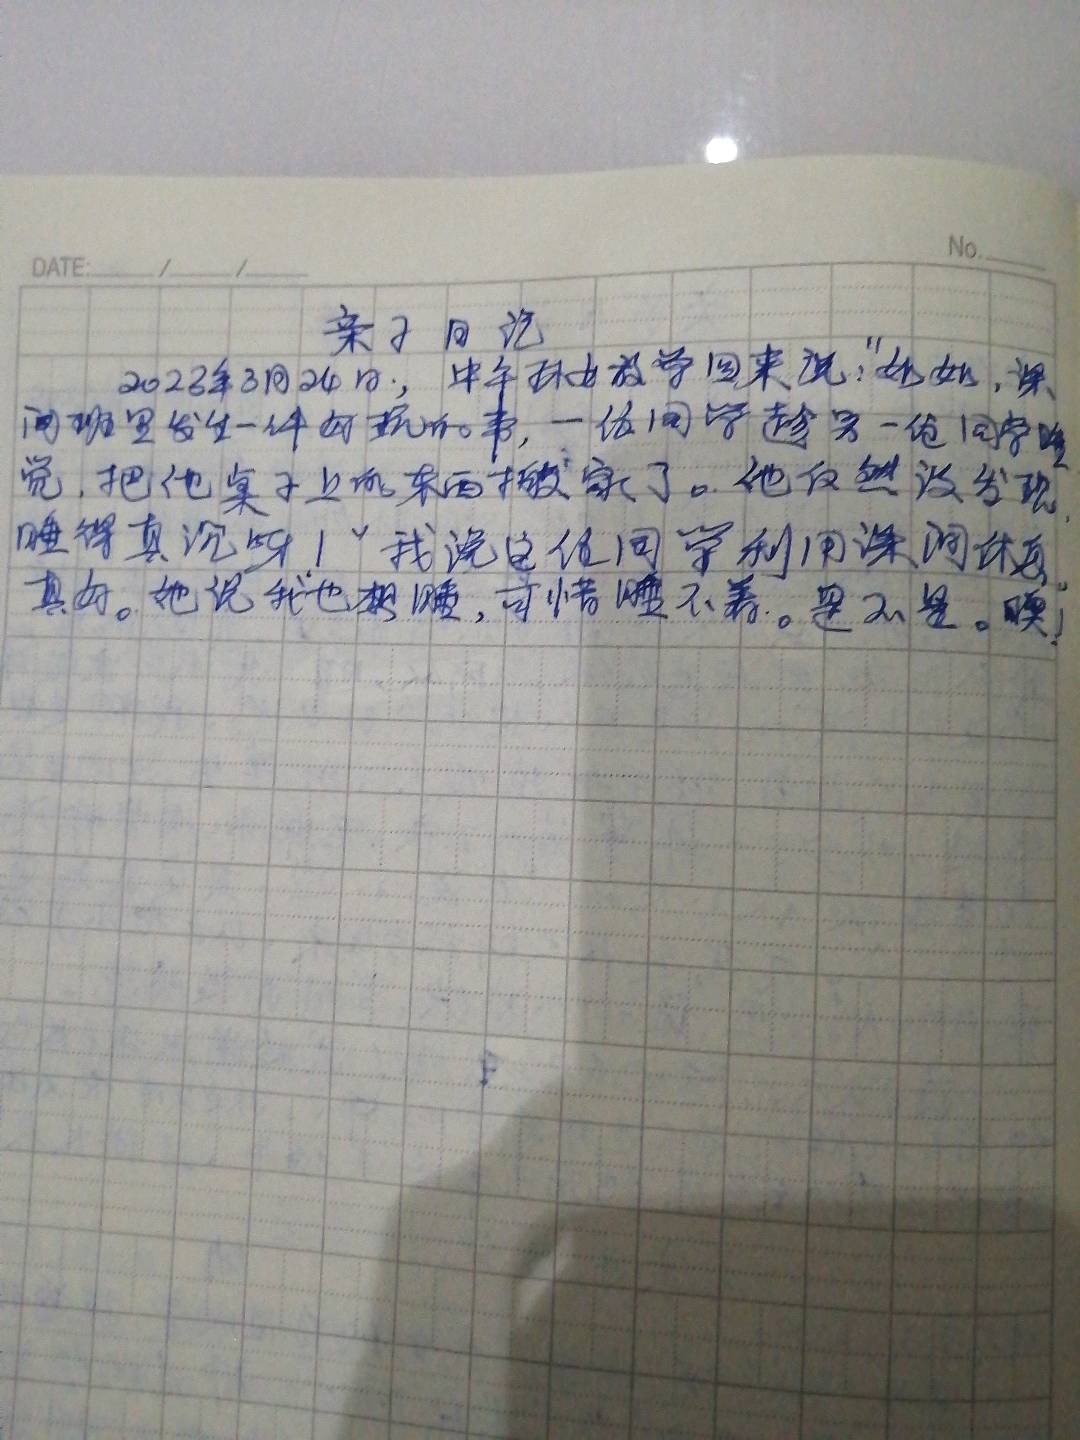 DATE: / /
No.
亲子日记
2023年3月24日, 中午放学回来说:"奶奶,课
间班里发生一件好玩的事,一位同学趁另一位同学睡
觉,把他桌子上的东西搬"家"了。他仍然没发现,
睡得真沉呀!"我说这位同学利用课间休息
真好。她说我也想睡,可惜睡不着。是不是。噢!